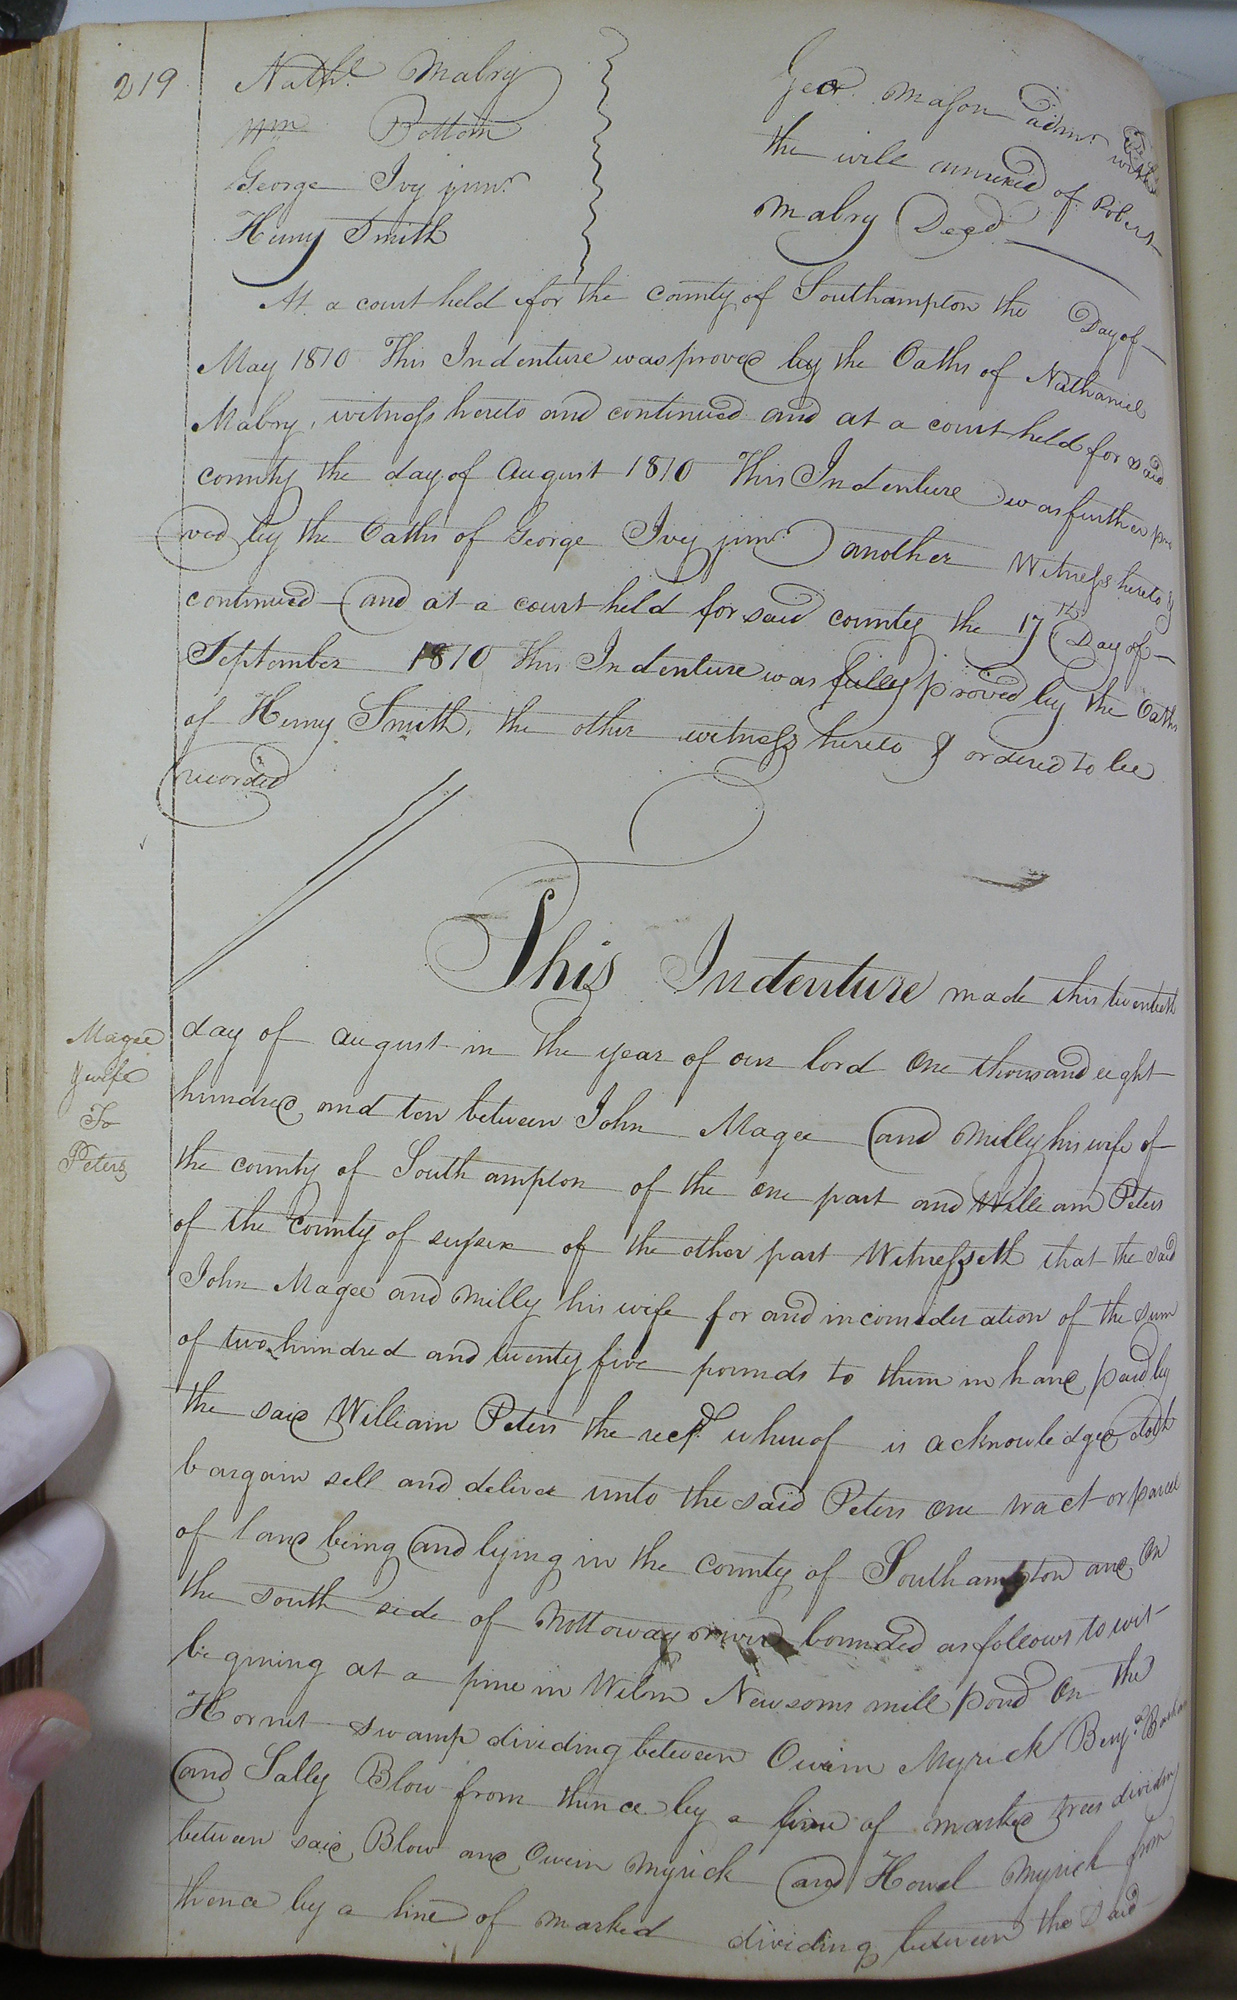 219
Nathl. Mabry
Wm Bottom
George Ivy junr.
Henry Smith
Geo. Mason admr. with
the will annexed of Robert
Mabry Decd
At a court held for the county of Southampton the Day of
May 1810 This Indenture was proved by the Oaths of Nathaniel
Mabry, witness hereto and continued and at a court held for said
county the day of August 1810 This Indenture was further pro
ved by the Oaths of George Ivy junr. another Witness hereto &
continued and at a court held for said county the 17th Day of
September 1810 This Indenture was fully proved by the Oaths
of Henny Smith, the other witness hereto & ordered to be
recorded
This Indenture made this twentieth
day of august in the year of our lord One thousand eight
hundred and ten between John Magee and Milly his wife of
the county of Southampton of the one part and William Peters
of the County of sussex of the other part Witnesseth that the said
John Magee and Milly his wife for and in consideration of the sum
of two hundred and twenty five pounds to them in hand paid by
the said William Peters the rect. whereof is acknowledged doth
bargain sell and deliver unto the said Peters one tract or parcel
of land being and lying in the county of Southampton and On
the south side of Nottoway river bounded as follows to wit
begining at a pine in Wilm Newsoms mill pond On the
Hornet swamp dividing between Owin Myrick Benja.
and Sally Blow from thence by a line of marked trees dividing
between said Blow and Owin Myrick and Howel Myrick from
thence by a line of marked dividing between the said
Magee
& wife
To
Peters